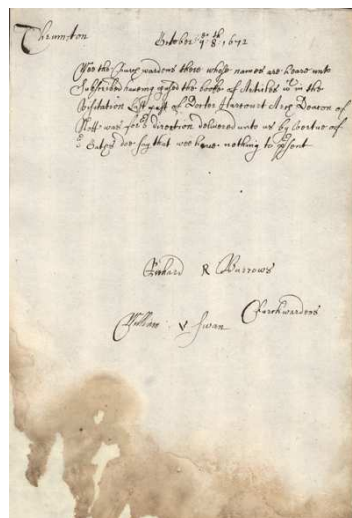 Thrumton
October ye 8th 1672
Wee the Churchwardens there whose names are heare unto
Subscribed having the booke of Articles wch in the
Visitation Last past of Doctor Harcourt Arch Deacon of
Nott: was for direction delivered unto us by vertue of
Oathes doe say that wee have nothing to psent
Richard R Burrows
Churchwardens
William V Swan